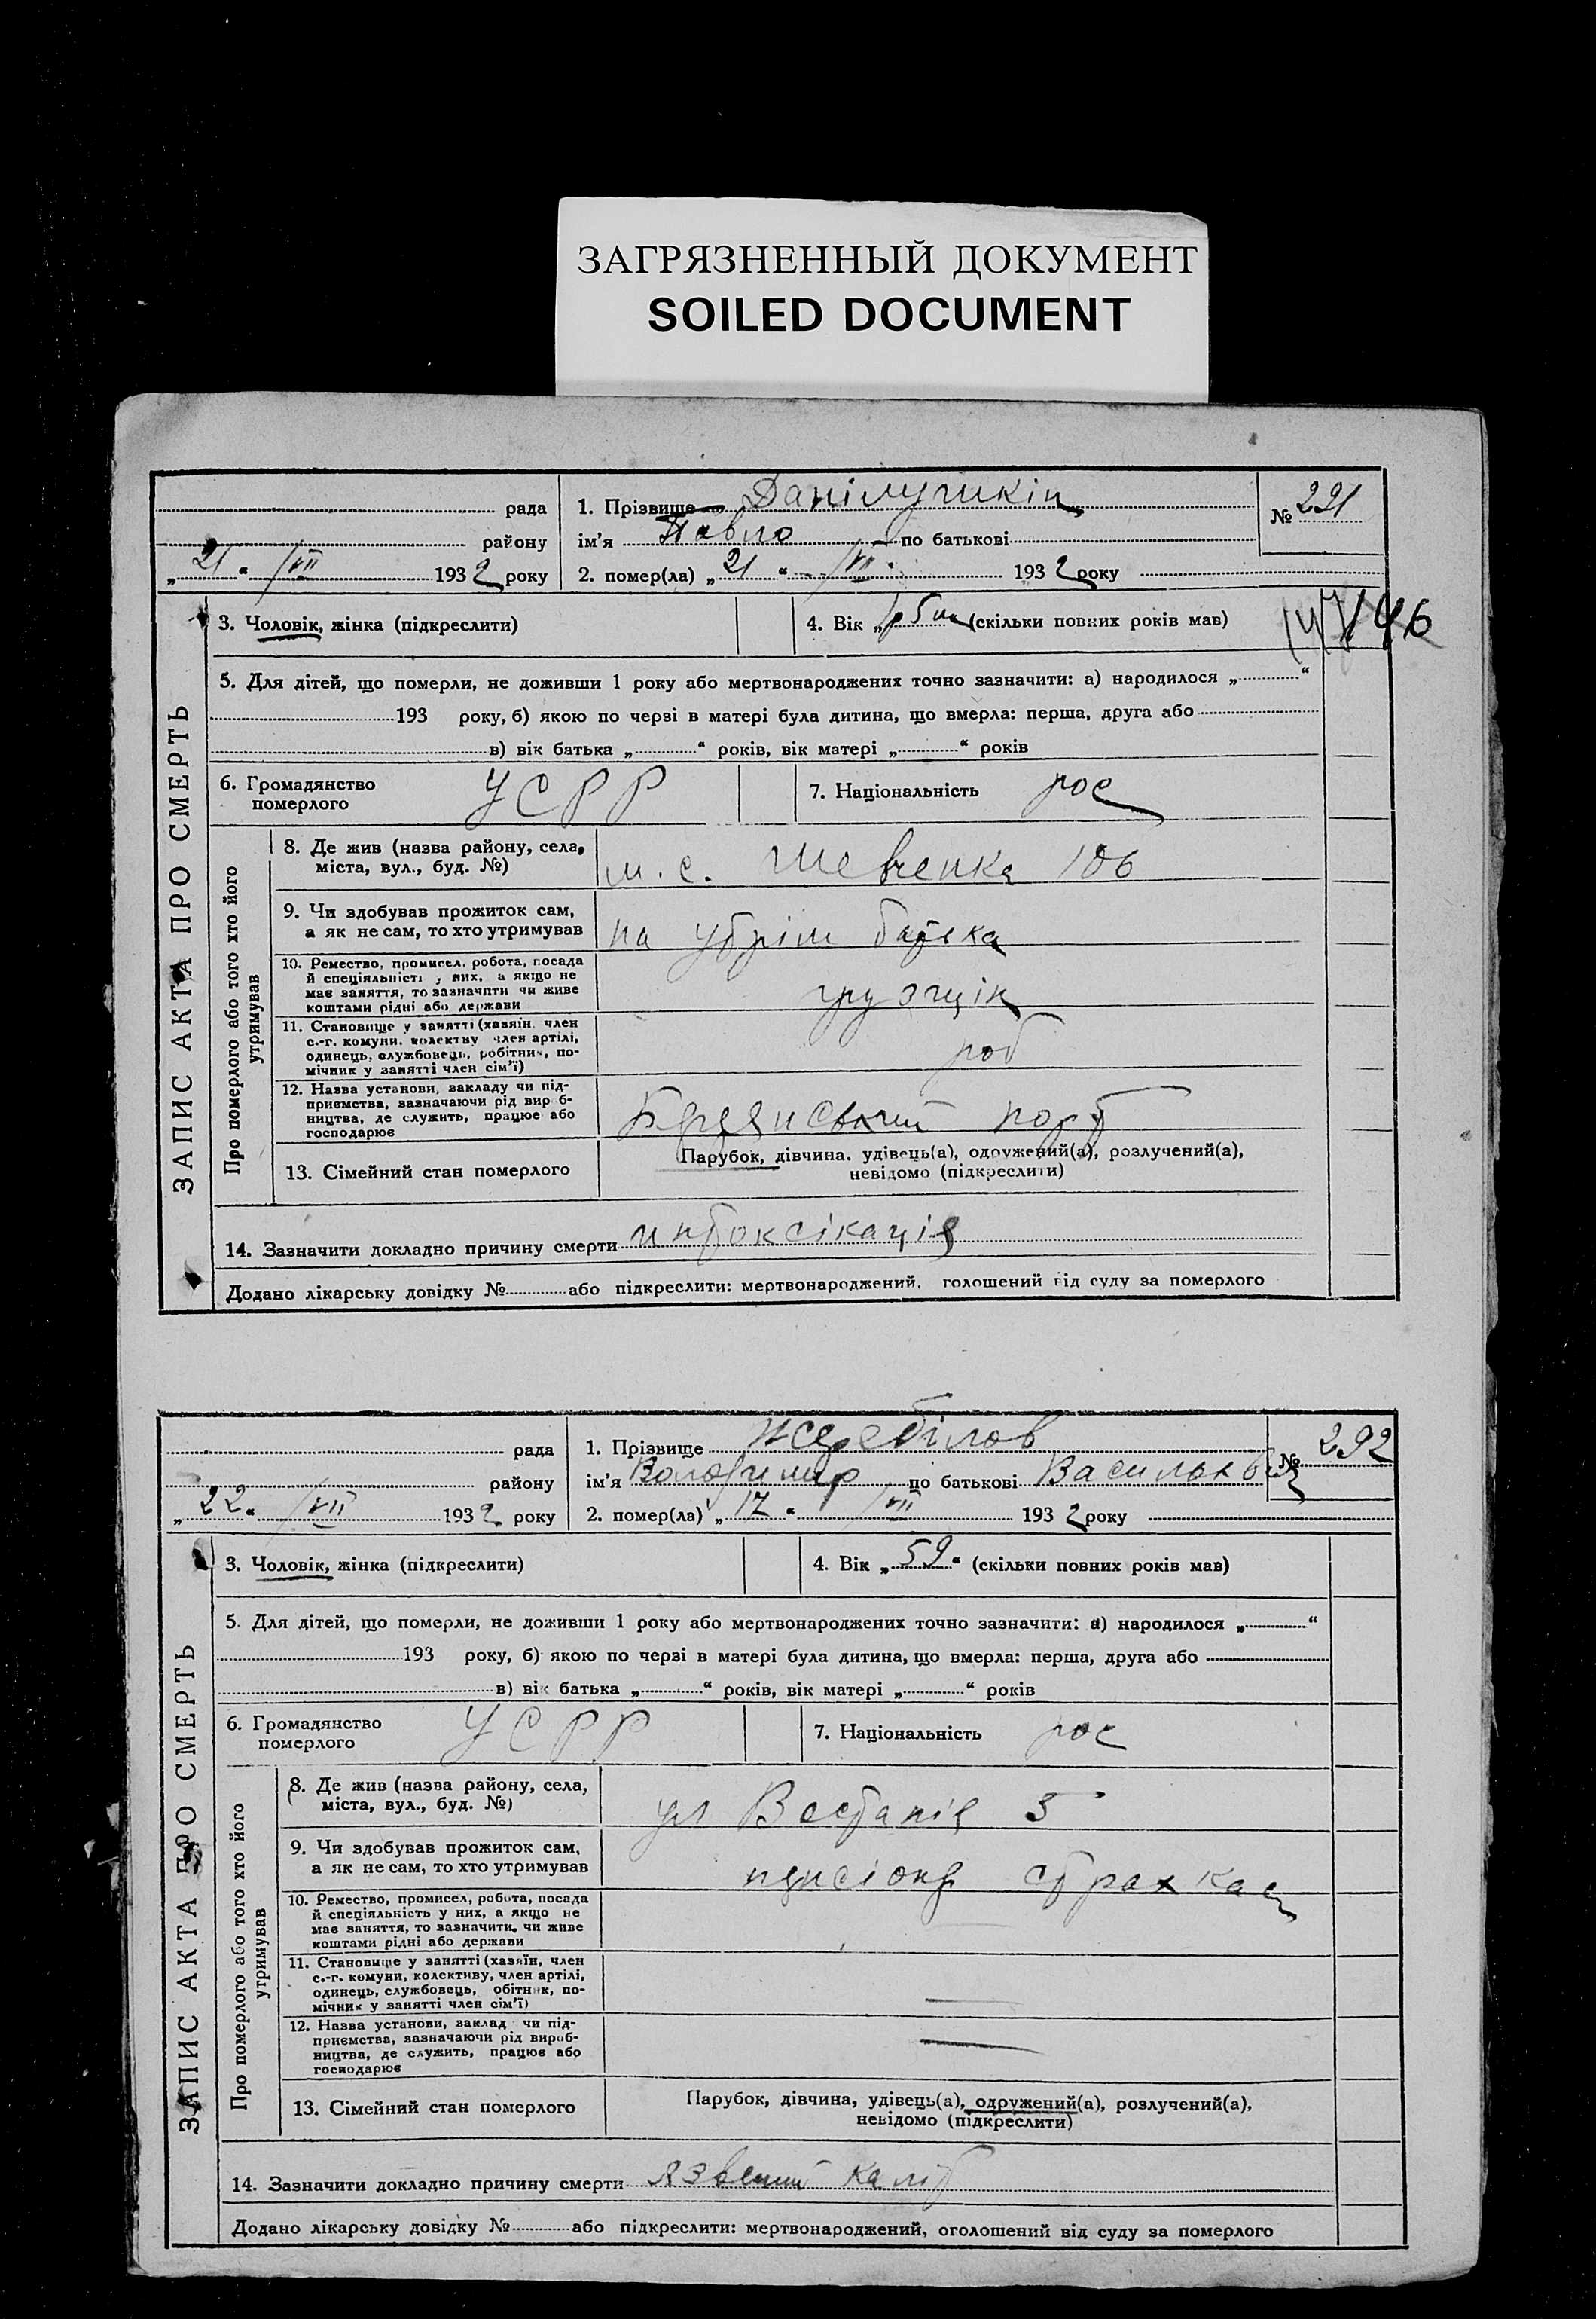 ЗАГРЯЗНЕННЫЙ ДОКУМЕНТ
SOILED DOCUMENT
рада
району
„21“ /VII 1932 року
1. Прізвище Данілушкін
ім'я Павло по батькові
2. помер(ла) „21“ /VII 1932 року
№ 291
ЗАПИС АКТА ПРО СМЕРТЬ
3. Чоловік, жінка (підкреслити)
4. Вік „1р 5м“ (скільки повних років мав)
147 146
5. Для дітей, що померли, не доживши 1 року або мертвонароджених точно зазначити: а) народилося „ “
193 року, б) якою по черзі в матері була дитина, що вмерла: перша, друга або
в) вік батька „ “ років, вік матері „ “ років
6. Громадянство
померлого
УСРР
7. Національність рос
Про померлого або того хто його
утримував
8. Де жив (назва району, села,
міста, вул., буд. №)
м. с. Шевченка 106
9. Чи здобував прожиток сам,
а як не сам, то хто утримував
на утрім батька
10. Ремество, промисел, робота, посада
й спеціяльність у них, а якщо не
має заняття, то зазначити чи живе
коштами рідні або держави
грузчік
11. Становище у занятті (хазяїн, член
с.-г. комуни, колективу член артілі,
одинець, службовець, робітник, по-
мічник у занятті член сім'ї)
роб
12. Назва установи, закладу чи під-
приємства, зазначаючи рід вироб-
ництва, де служить, працює або
господарює
Бердянський порт
13. Сімейний стан померлого
Парубок, дівчина, удівець(а), одружений(а), розлучений(а),
невідомо (підкреслити)
14. Зазначити докладно причину смерти интоксікація
Додано лікарську довідку № або підкреслити: мертвонароджений, голошений від суду за померлого
рада
району
„22“ /VII 1932 року
1. Прізвище Жеребілов
ім'я Володимир по батькові Васильович
2. помер(ла) „17“ /VII 1932 року
№ 292
ЗАПИС АКТА ПРО СМЕРТЬ
3. Чоловік, жінка (підкреслити)
4. Вік „59“ (скільки повних років мав)
5. Для дітей, що померли, не доживши 1 року або мертвонароджених точно зазначити: а) народилося „ “
193 року, б) якою по черзі в матері була дитина, що вмерла: перша, друга або
в) вік батька „ “ років, вік матері „ “ років
6. Громадянство
померлого
УСРР
7. Національність рос
Про померлого або того хто його
утримував
8. Де жив (назва району, села,
міста, вул., буд. №)
ул Востанія 5
9. Чи здобував прожиток сам,
а як не сам, то хто утримував
пенсіонер страхкас
10. Ремество, промисел, робота, посада
й спеціяльність у них, а якщо не
має заняття, то зазначити, чи живе
коштами рідні або держави
11. Становище у занятті (хазяїн, член
с.-г. комуни, колективу, член артілі,
одинець, службовець, обітник, по-
мічник у занятті член сім'ї)
12. Назва установи, заклад чи під-
приємства, зазначаючи рід вироб-
ництва, де служить, працює або
господарює
13. Сімейний стан померлого
Парубок, дівчина, удівець(а), одружений(а), розлучений(а),
невідомо (підкреслити)
14. Зазначити докладно причину смерти язвений каліт
Додано лікарську довідку № або підкреслити: мертвонароджений, оголошений від суду за померлого